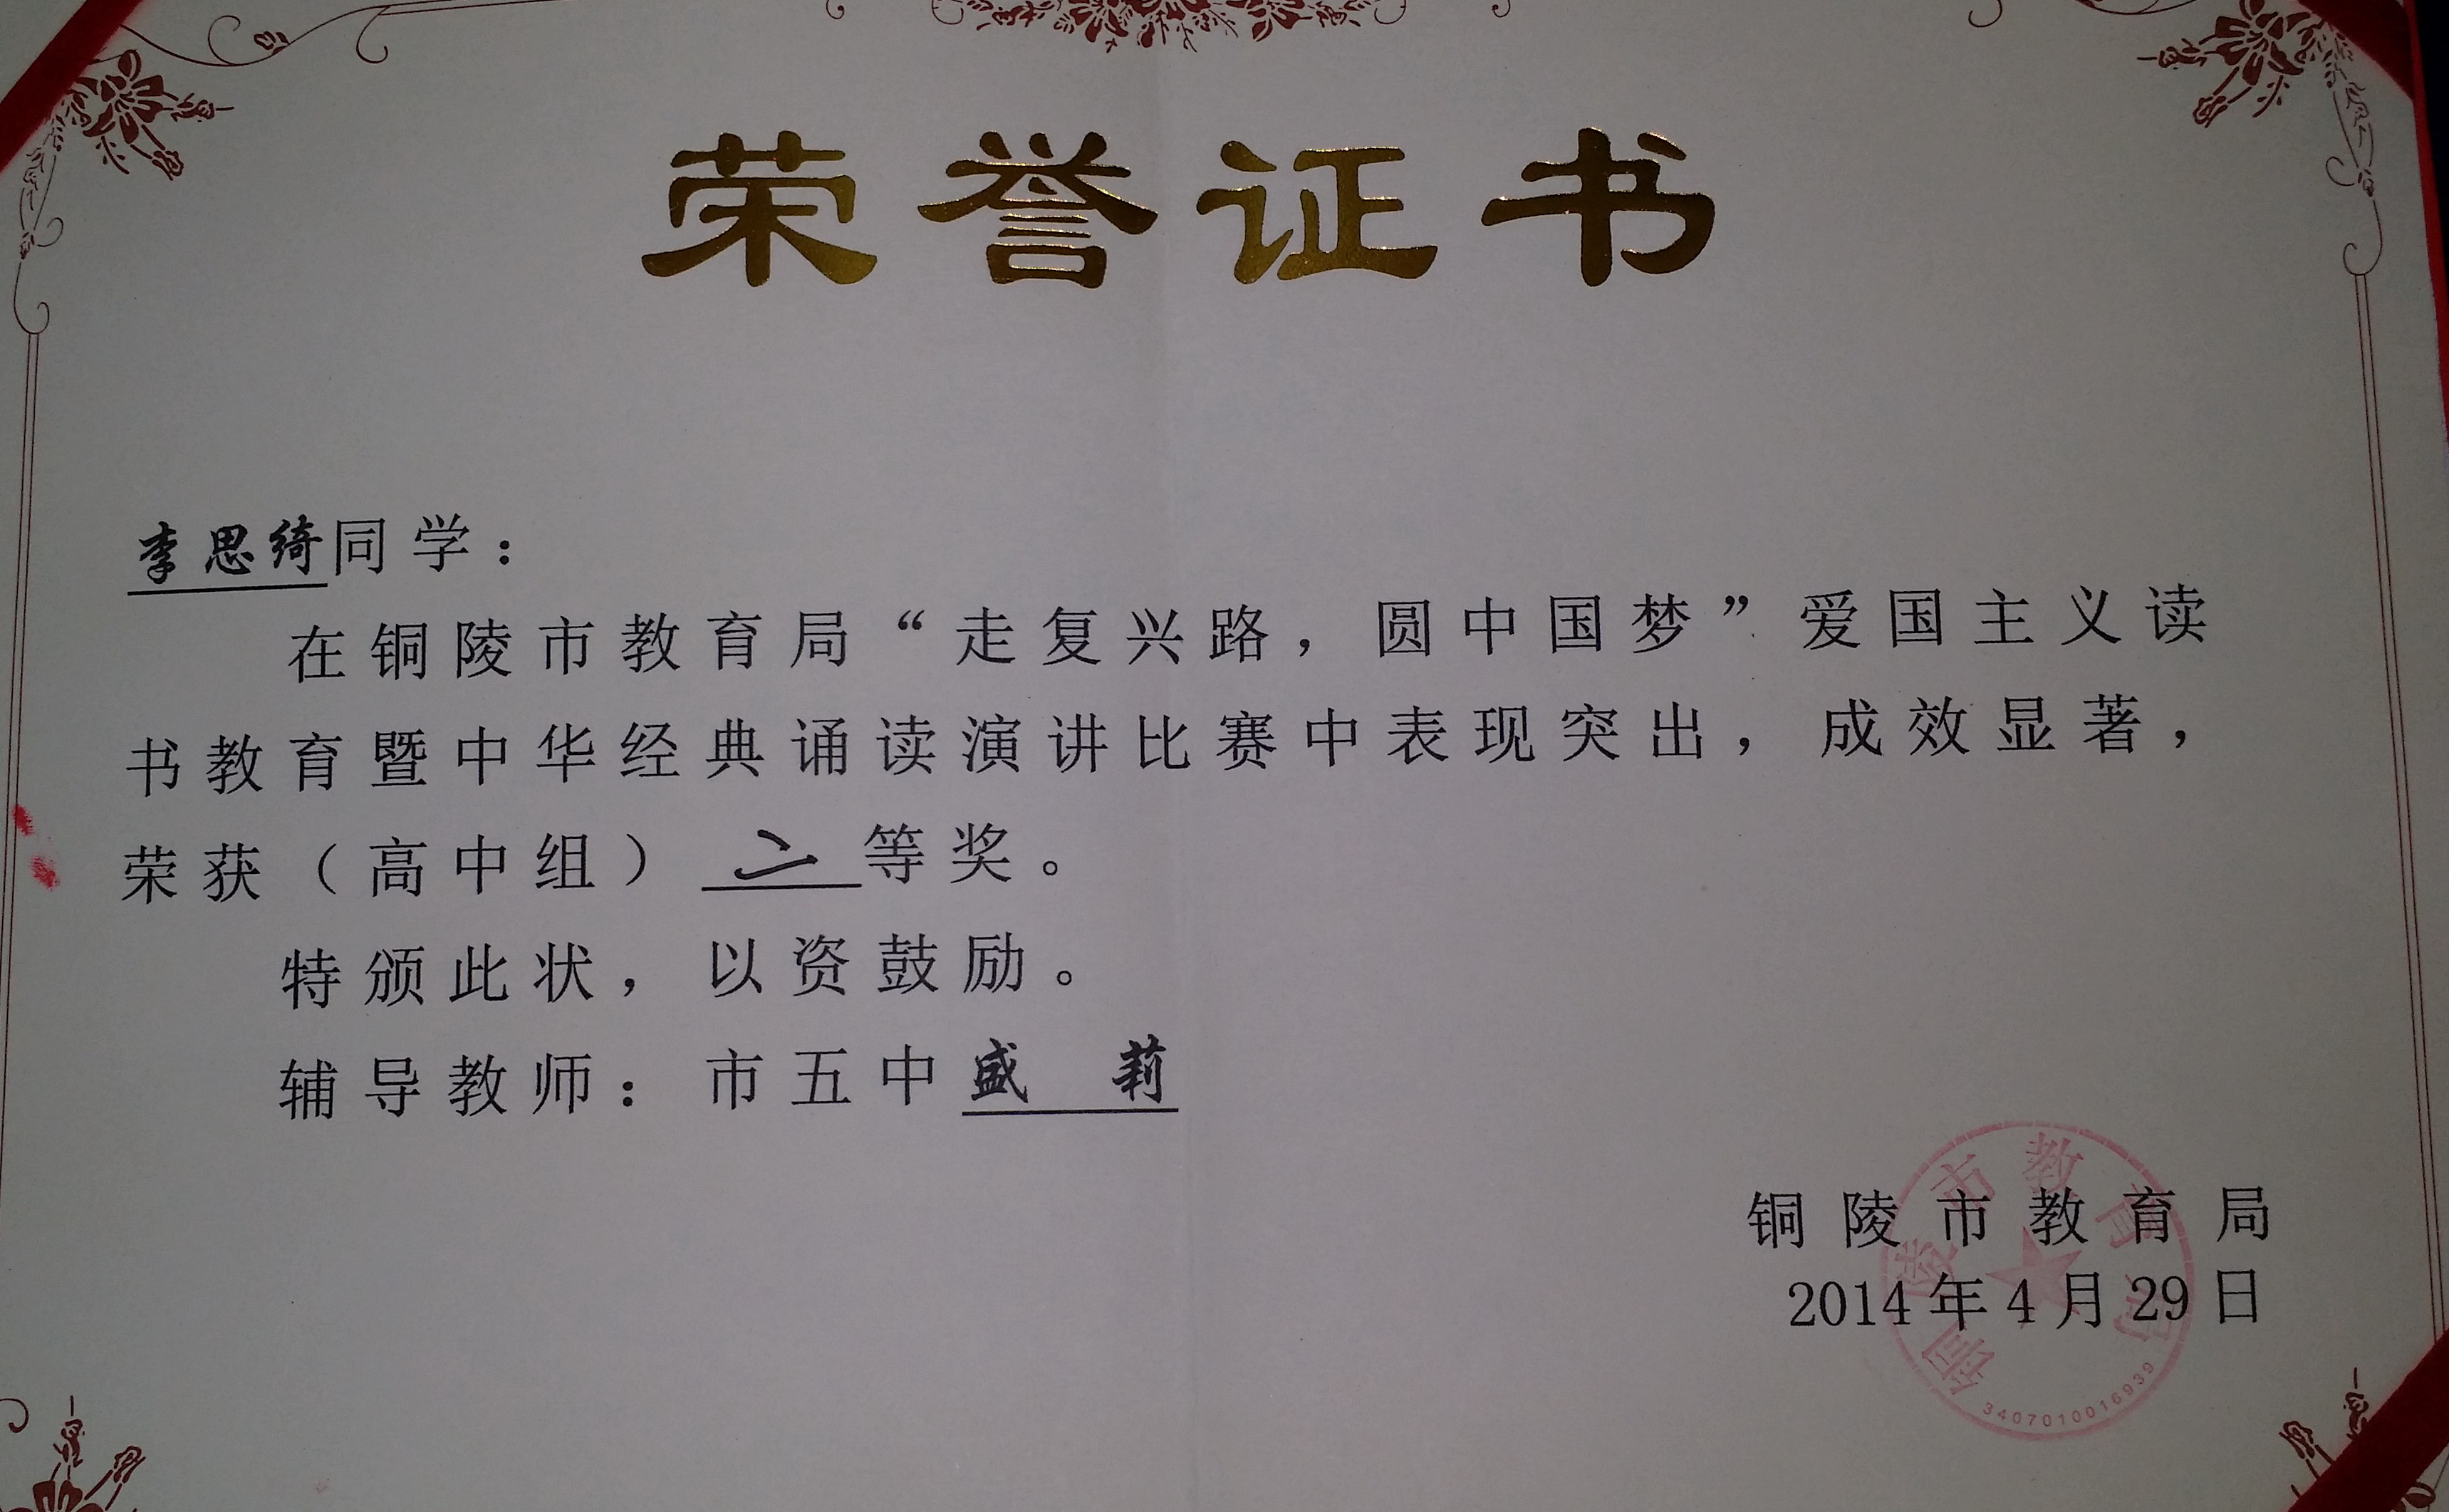 荣誉证书
李思绮同学：
在铜陵市教育局“走复兴路，圆中国梦”爱国主义读
书教育暨中华经典诵读演讲比赛中表现突出，成效显著，
荣获（高中组）二等奖。
特颁此状，以资鼓励。
辅导教师：市五中盛 莉
铜陵市教育局
2014年4月29日
铜陵市教育局
3407010016939